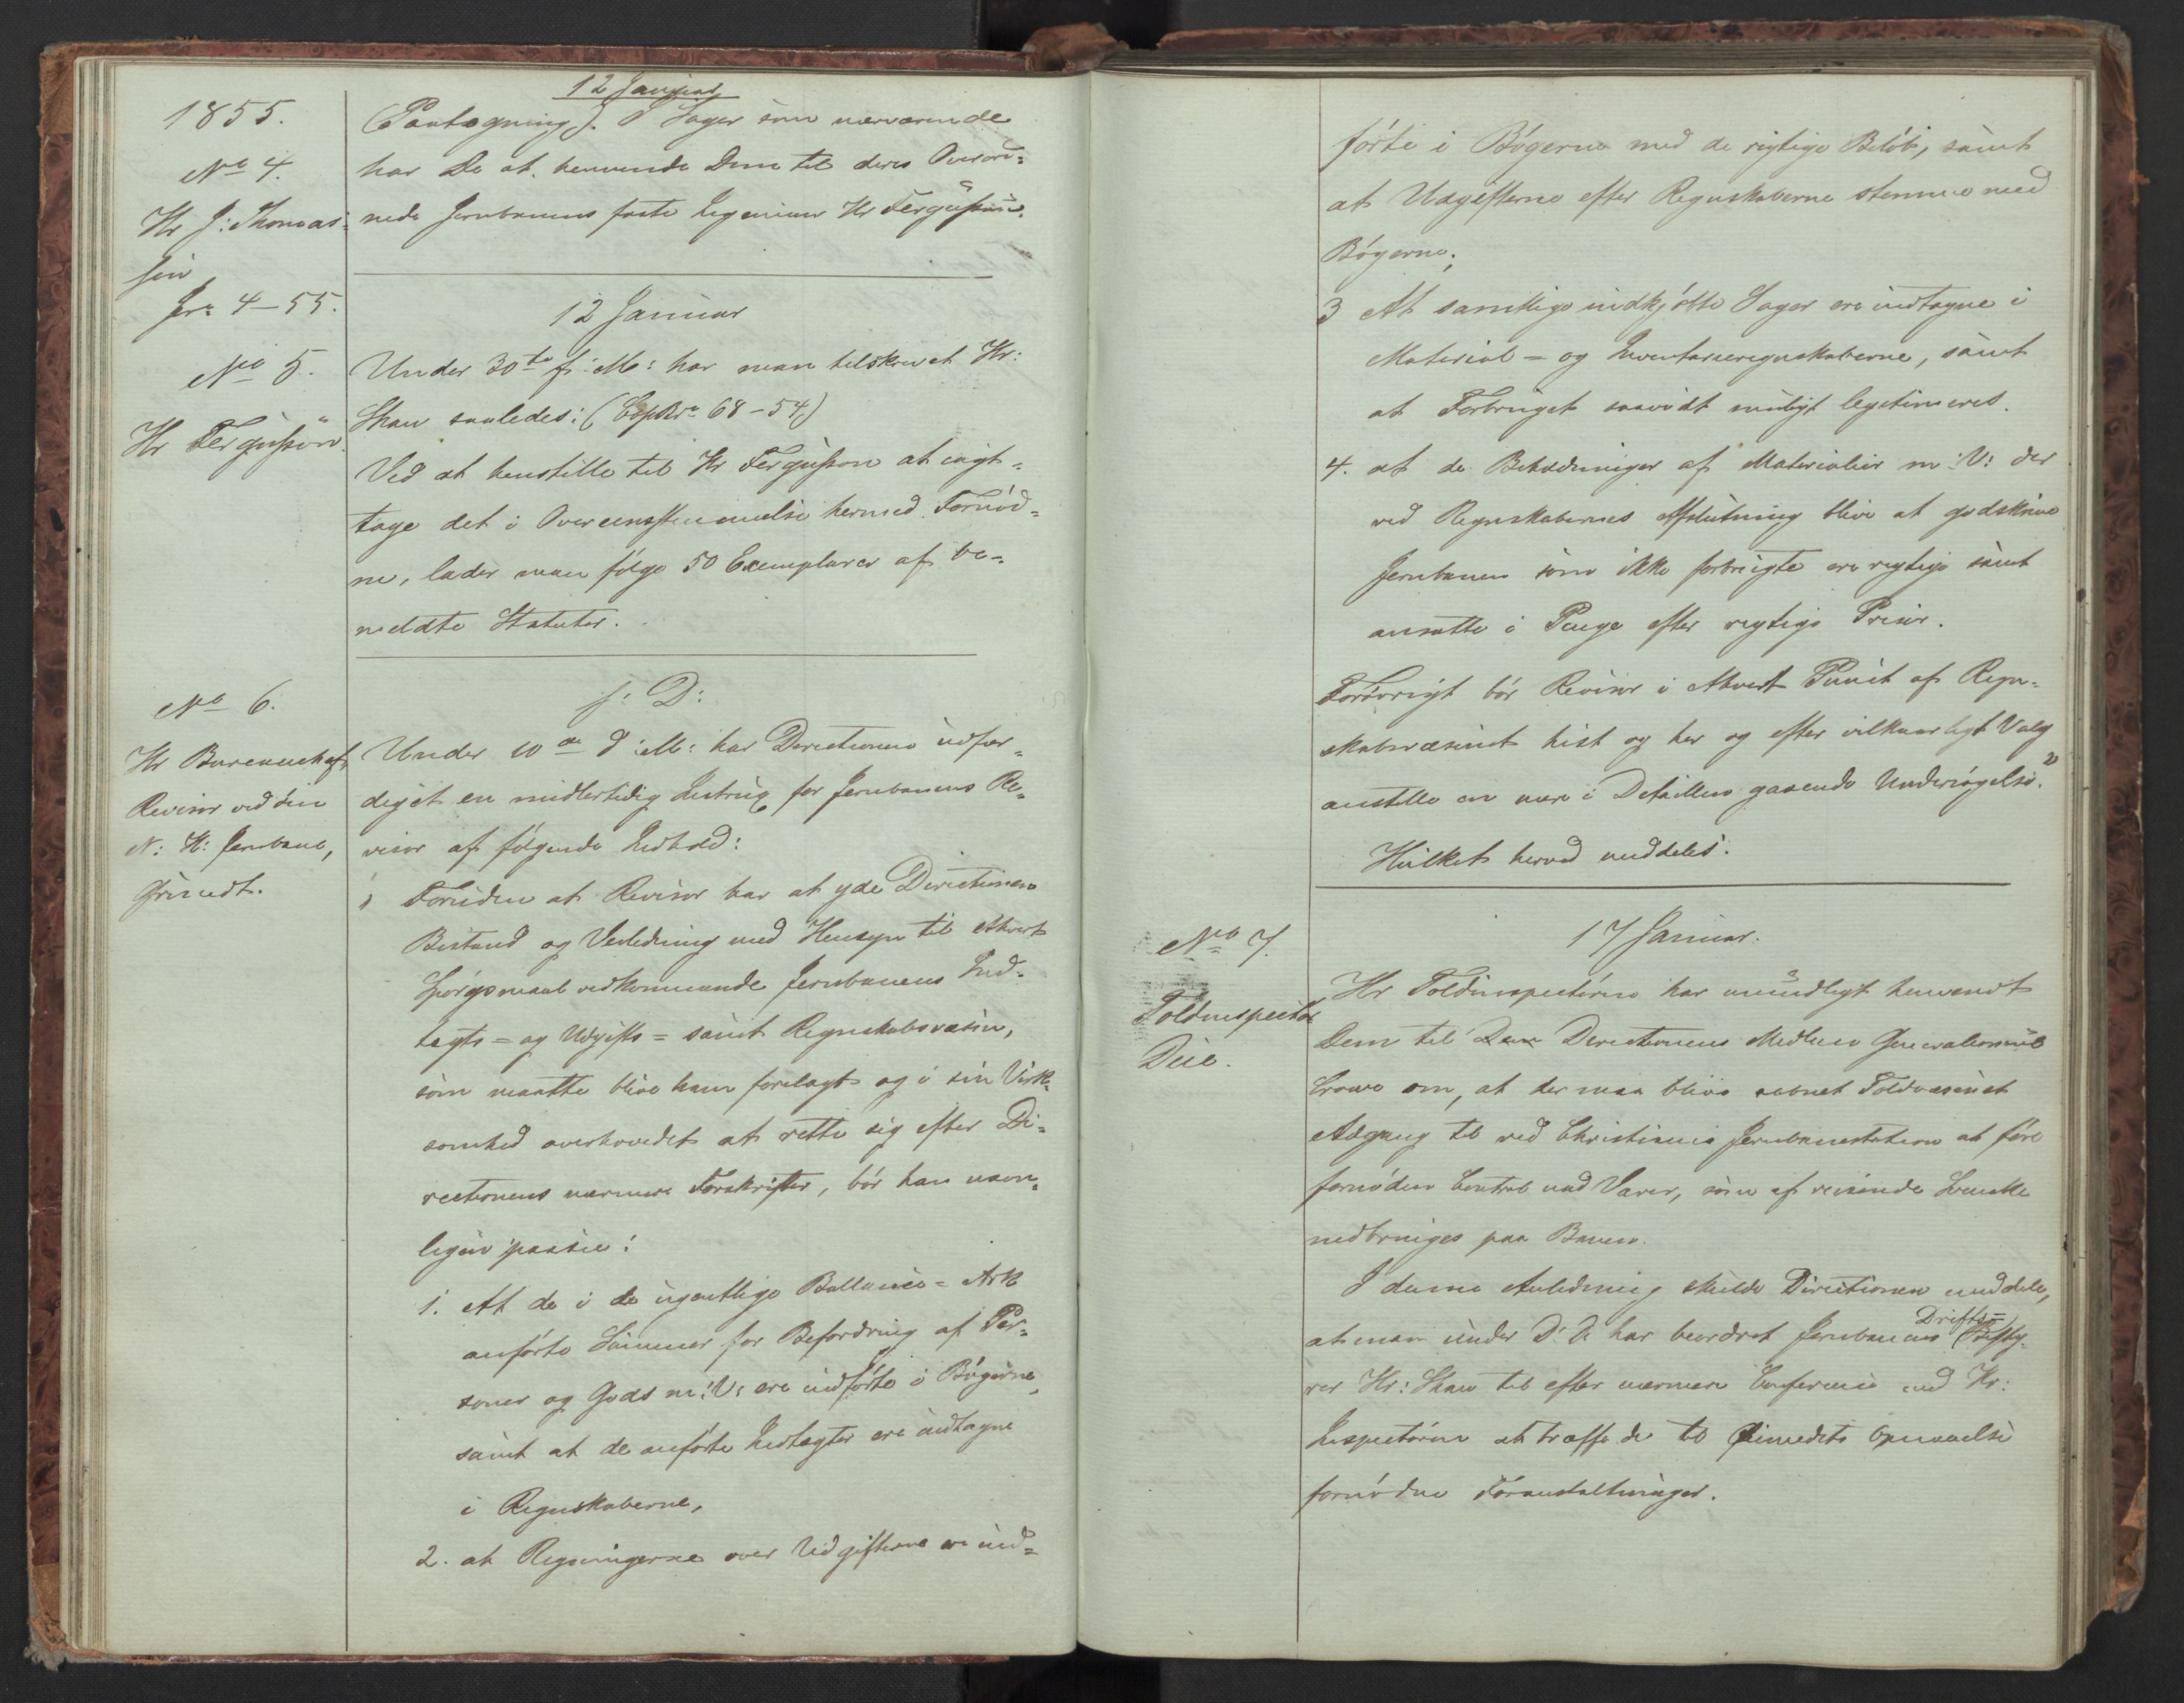 1855.
No 4.
Hr J: Thomas-
sen
Jr: 4-55.
12 Januar
(Paategning). I Sager som nærværende
har De at henvende Dem til deres Overord=
nede Jernbanens faste Ingenieur Hr Fergusson.
12 Januar
No 5.
Hr Fergusson.
Under 30te f: M: har man tilskrevet Hr:
Shaw saaledes: (Cop Nr 68-54)
Ved at henstille til Hr Fergusson at iagt=
tage det i Overeensstemmelse hermed Fornød=
ne, lader man følge 50 Exemplarer af be=
meldte Statuter.
No 6.
Hr Bureauchef,
Revisor ved den
N: H: Jernbane,
Grundt.
s: D:
Under 10de d: M: har Directionen udfær=
diget en midlertidig Instrux for Jernbanens Re=
visor af følgende Indhold:
" Foruden at Revisor har at yde Directionen
Bistand og Veiledning med Hensyn til ethvert
Spørgsmaal vedkommende Jernbanens Ind=
tegts= og Udgifts= samt Regnskabsvæsen,
som maatte blive ham forelagt og i sin Virk=
somhed overhovedet at rette sig efter Di=
rectionens nærmere Forskrifter, bør han navn=
ligen paasee:
1. At de i de ugentlige Ballance=Ark
anførte Summer for Befordring af Per=
soner og Gods m: V: ere indførte i Bøgerne,
samt at de anførte Indtegter ere indtagne
i Regnskaberne,
2. at Regningerne over Udgifterne ere ind=
førte i Bøgerne med de rigtige Beløb, samt
at Udgifterne efter Regnskaberne stemme med
Bøgerne;
3 At samtlige indkjøbte Sager ere indtagne i
Material= og Inventarieregnskaberne, samt
at Forbruget saavidt muligt legitimeres.
4. at de Beholdninger af Materialier m: V: der
ved Regnskabernes Afslutning blive at godskrive
Jernbanen som ikke forbrugte ere rigtige samt
ansatte i Penge efter rigtige Priser.
Forøvrigt bør Revisor i ethvert Punct af Regn=
skabsvæsenet hist og her og efter vilkaarligt Valg
anstille en mere i Detaillen gaaende Undersøgelse."
Hvilket herved meddeles.
No 7.
Toldinspecteur
Dûe.
17 Januar.
Hr Toldinspecteuren har mundtligt henvendt
Dem til Directionens Medlem Generalconsul
Crowe om, at der maa blive aabnet Toldvæsenet
Adgang til ved Christiania Jernbanestation at føre
fornøden Control med Varer, som af reisende Svenske
nedbringes paa Banen.
I denne Anledning skulde Directionen meddele,
at man under D: D: har beordret Jernbanens Drifts=Besty=
rer Hr: Shaw til efter nærmere Conference med Hr:
Inspecteuren at træffe de til Øiemedets Opnaaelse
fornødne Foranstaltninger.